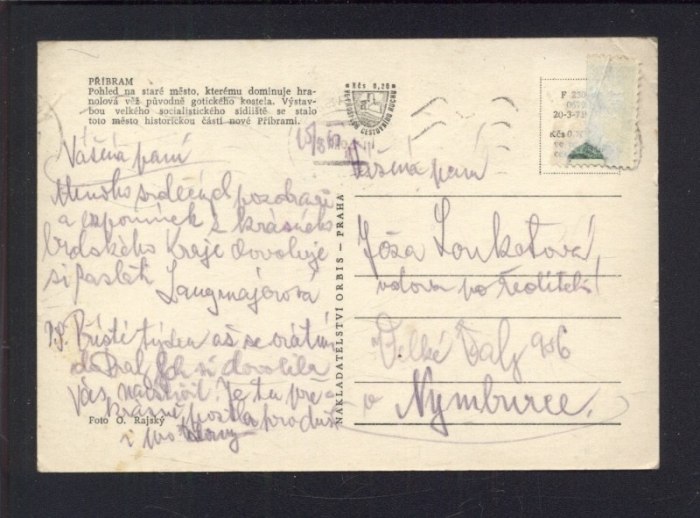 PŘÍBRAM
Pohled na staré město, kterému dominuje hra-
nolová věž původně gotického kostela. Výstav-
bou velkého socialistického sídliště se stalo
toto město historickou částí nové Příbrami.
Kčs 0,20
CESTOVNÍHO RUCHU
F 250
20-3-71
Kčs 0,
Vážená paní
Mnoho srdečných pozdravů
a vzpomínek z krásného
brdského kraje dovoluje
si zaslat Langmajerová
P.S. Příští týden až se vrátím
do si dovolila
Vás navštívit. Je tu pře-
krásně
i pro
Foto O. Rajský
NAKLADATELSTVÍ ORBIS — PRAHA
Vážená paní
Jóža Louketová,
vdova po řediteli
Velké Valy 936
v Nymburce.